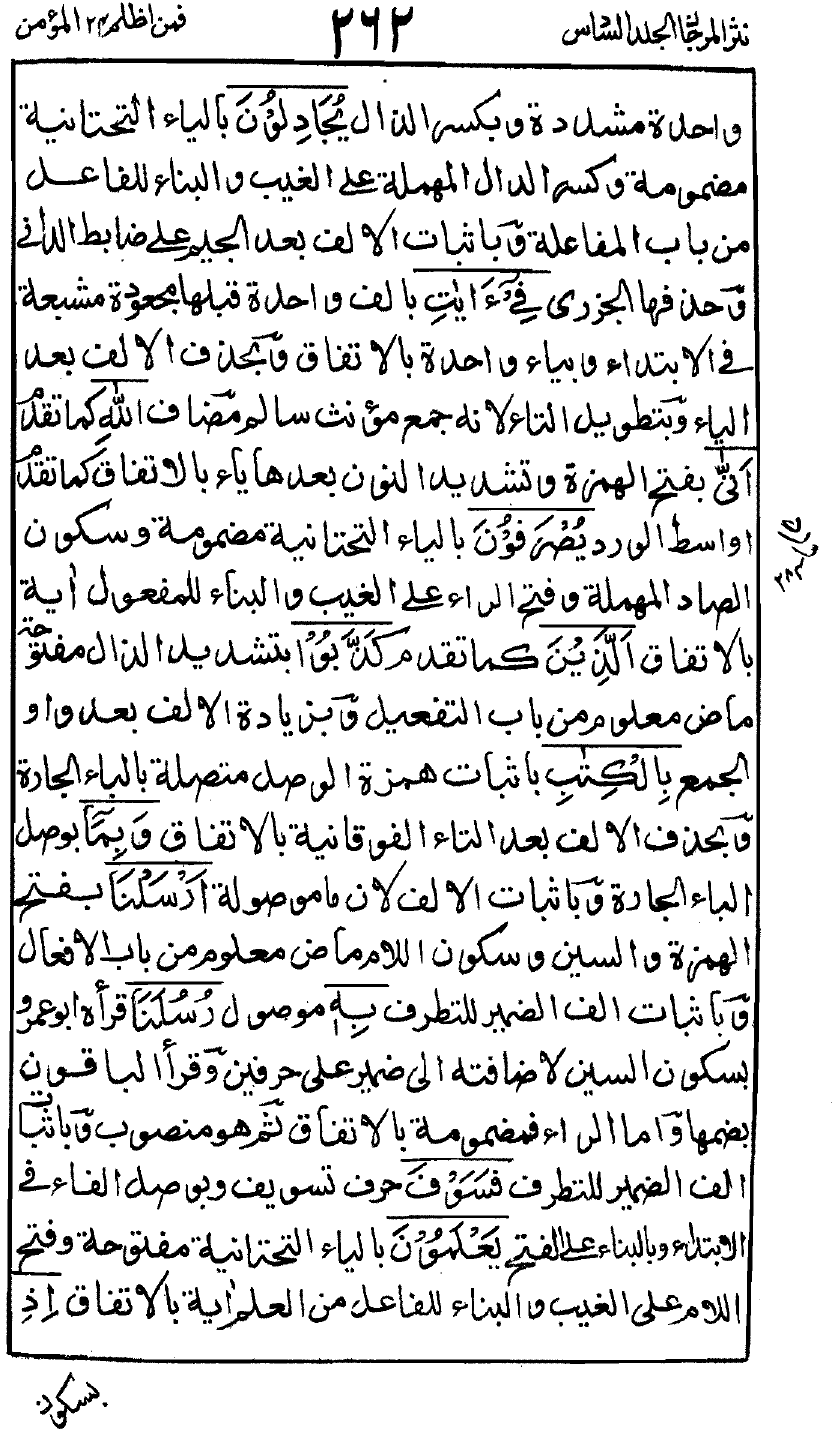 نثر المرجان الجلد السادس ٢٦٢ فمن اظلم ٢٤ المؤمن
واحدة مشددة وبكسر الذال يُجَادِلُوْنَ بالياء التحتانية
مضمومة وكسر الدال المهملة على الغيب والبناء للفاعل
من باب المفاعلة وّباثبات الالف بعد الجيم على ضابط الدانى
وّحذفها الجزرى فِىْٓ ءَايٰتِ بالف واحدة قبلها مجعودة مشبعة
فى الابتداء وبياء واحدة بالاتفاق وّبحذف الالف بعد
الياء وّبتطويل التاء لانه جمع مؤنث سالم مّضاف اللّٰهِ كما تقدم
اَنّٰى بفتح الهمزة وتشديد النون بعدها ياء بالاتفاق كما تقدم
اواسط الورد يُصْرَفُوْنَ بالياء التحتانية مضمومة وسكون
الصاد المهملة وفتح الراء على الغيب والبناء للمفعول اٰية
بالاتفاق اَلَّذِيْنَ كما تقدم كَذَّبُوْا بتشديد الذال مفتوحة
ماض معلوم من باب التفعيل وّبزيادة الالف بعد واو
الجمع بِالْكِتٰبِ باثبات همزة الوصل متصلة بالباء الجارة
وّبحذف الالف بعد التاء الفوقانية بالاتفاق وَبِمَآ بوصل
الباء الجارة وّباثبات الالف لان ما موصولة اَرْسَلْنَا بفتح
الهمزة والسين وسكون اللام ماض معلوم من باب الافعال
وّباثبات الف الضمير للتطرف بِهٖ موصول رُسُلَنَا قرأه ابو عمرو
بسكون السين لاضافته الى ضمير على حرفين وّقرأ الباقون
بضمها وّاما الراء فمضمومة بالاتفاق ثم هو منصوب وّباثبات
الف الضمير للتطرف فَسَوْفَ حرف تسويف وبوصل الفاء فى
الابتداء وبالبناء على الفتح يَعْلَمُوْنَ بالياء التحتانية مفتوحة وفتح
اللام على الغيب والبناء للفاعل من العلم اٰية بالاتفاق اِذِ
بسكون